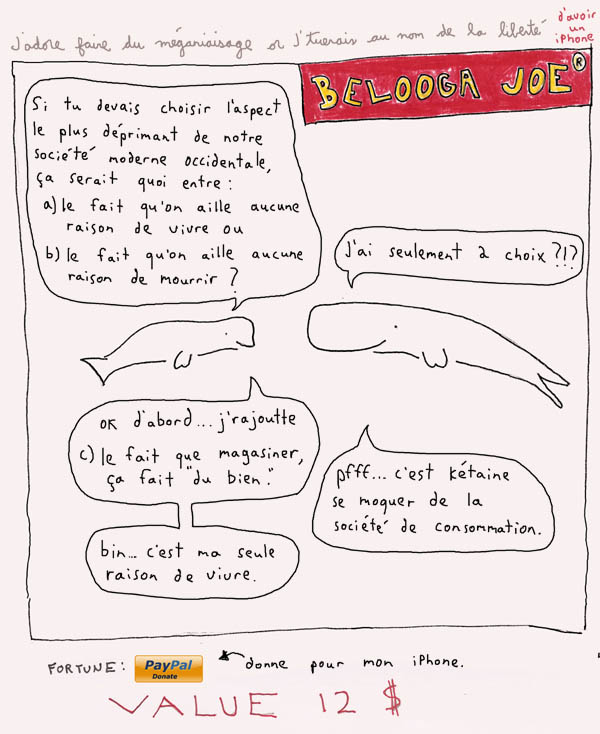 J'adore faire du mégariaisage or j'tuerais au nom de la liberté
d'avoir
un
iPhone
BELOOGA JOE®
Si tu devais choisir l'aspect
le plus déprimant de notre
société moderne occidentale,
ça serait quoi entre :
a) le fait qu'on aille aucune
raison de vivre ou
b) le fait qu'on aille aucune
raison de mourrir ?
J'ai seulement 2 choix ?!?
OK d'abord... j'rajoutte
c) le fait que magasiner,
ça fait "du bien."
pfff... c'est kétaine
se moquer de la
société de consommation.
bin... c'est ma seule
raison de vivre.
FORTUNE : PayPal
Donate
donne pour mon iPhone.
VALUE 12 $